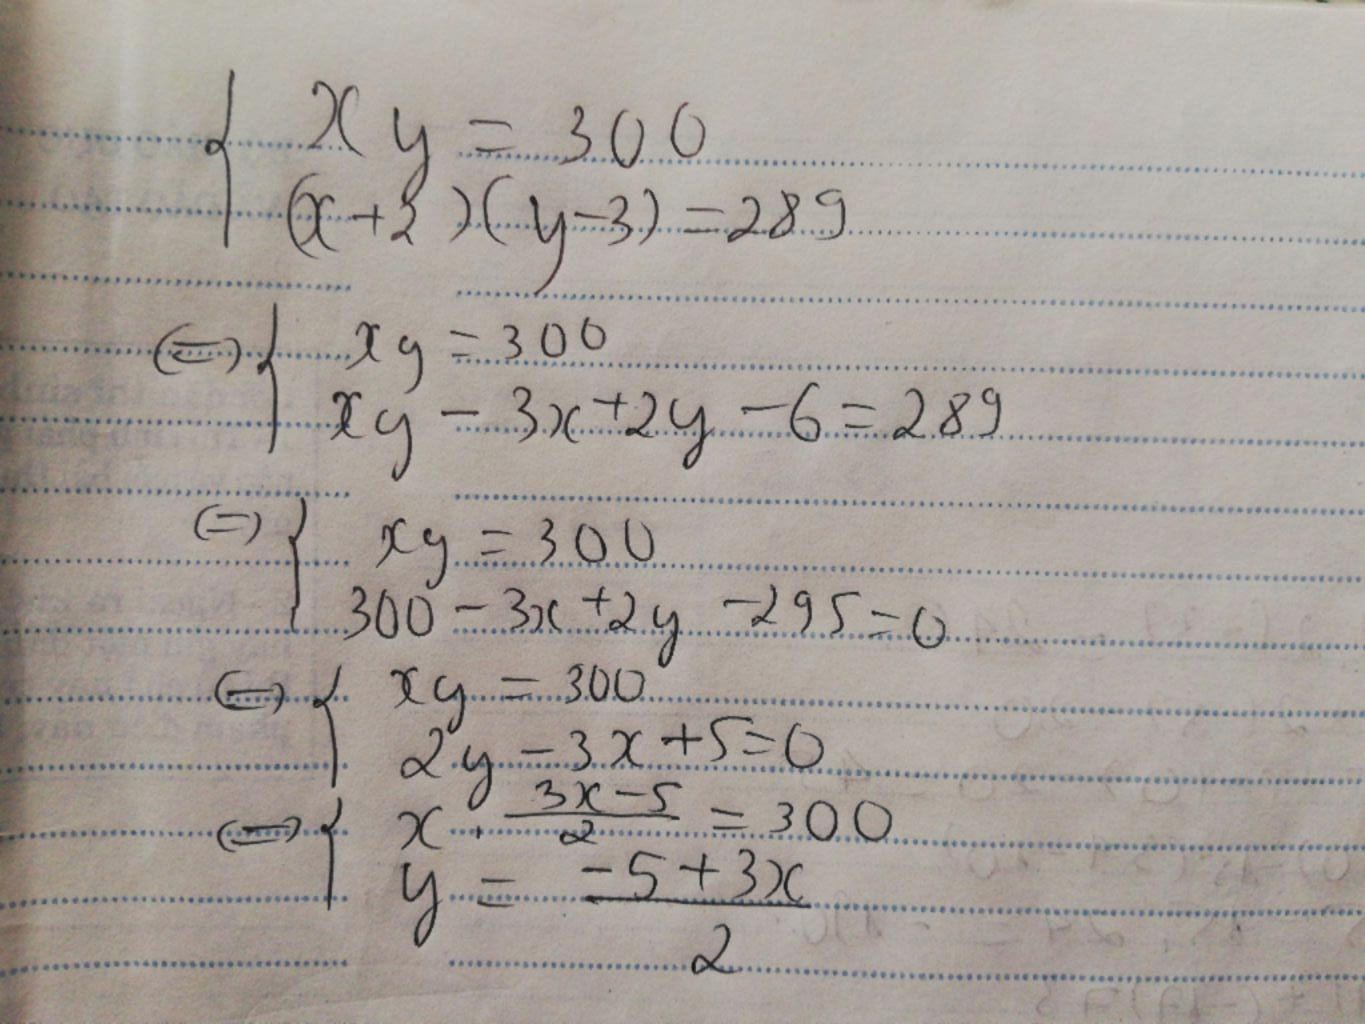 { xy = 300
(x+2)(y-3) = 289
(=) { xy = 300
xy - 3x + 2y - 6 = 289
(=) { xy = 300
300 - 3x + 2y - 295 = 0
(=) { xy = 300
2y - 3x + 5 = 0
(=) { x . (3x-5)/2 = 300
y = (-5+3x)/2